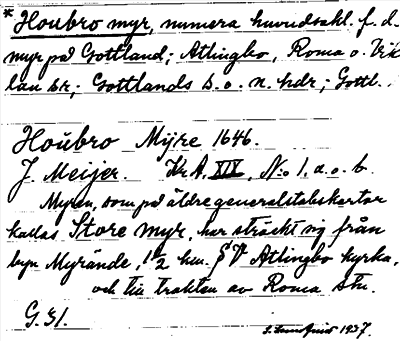 * Houbro myr, numera huvudsakl. f. d.
myr på Gottland; Atlingbo, Roma o. Vik
lau sr; Gottlands s. o. n. hdr; Gottl.
Houbro Myre 1646.
J. Meijer. Kr A. XIX, No 1. a. o. b.
Myren, som på äldre generalstabskartor
kallas Store myr, har sträckt sig från
byn Myrände, 1 1/2 km. SV Atlingbo kyrka,
och till trakten av Roma stn.
1937.